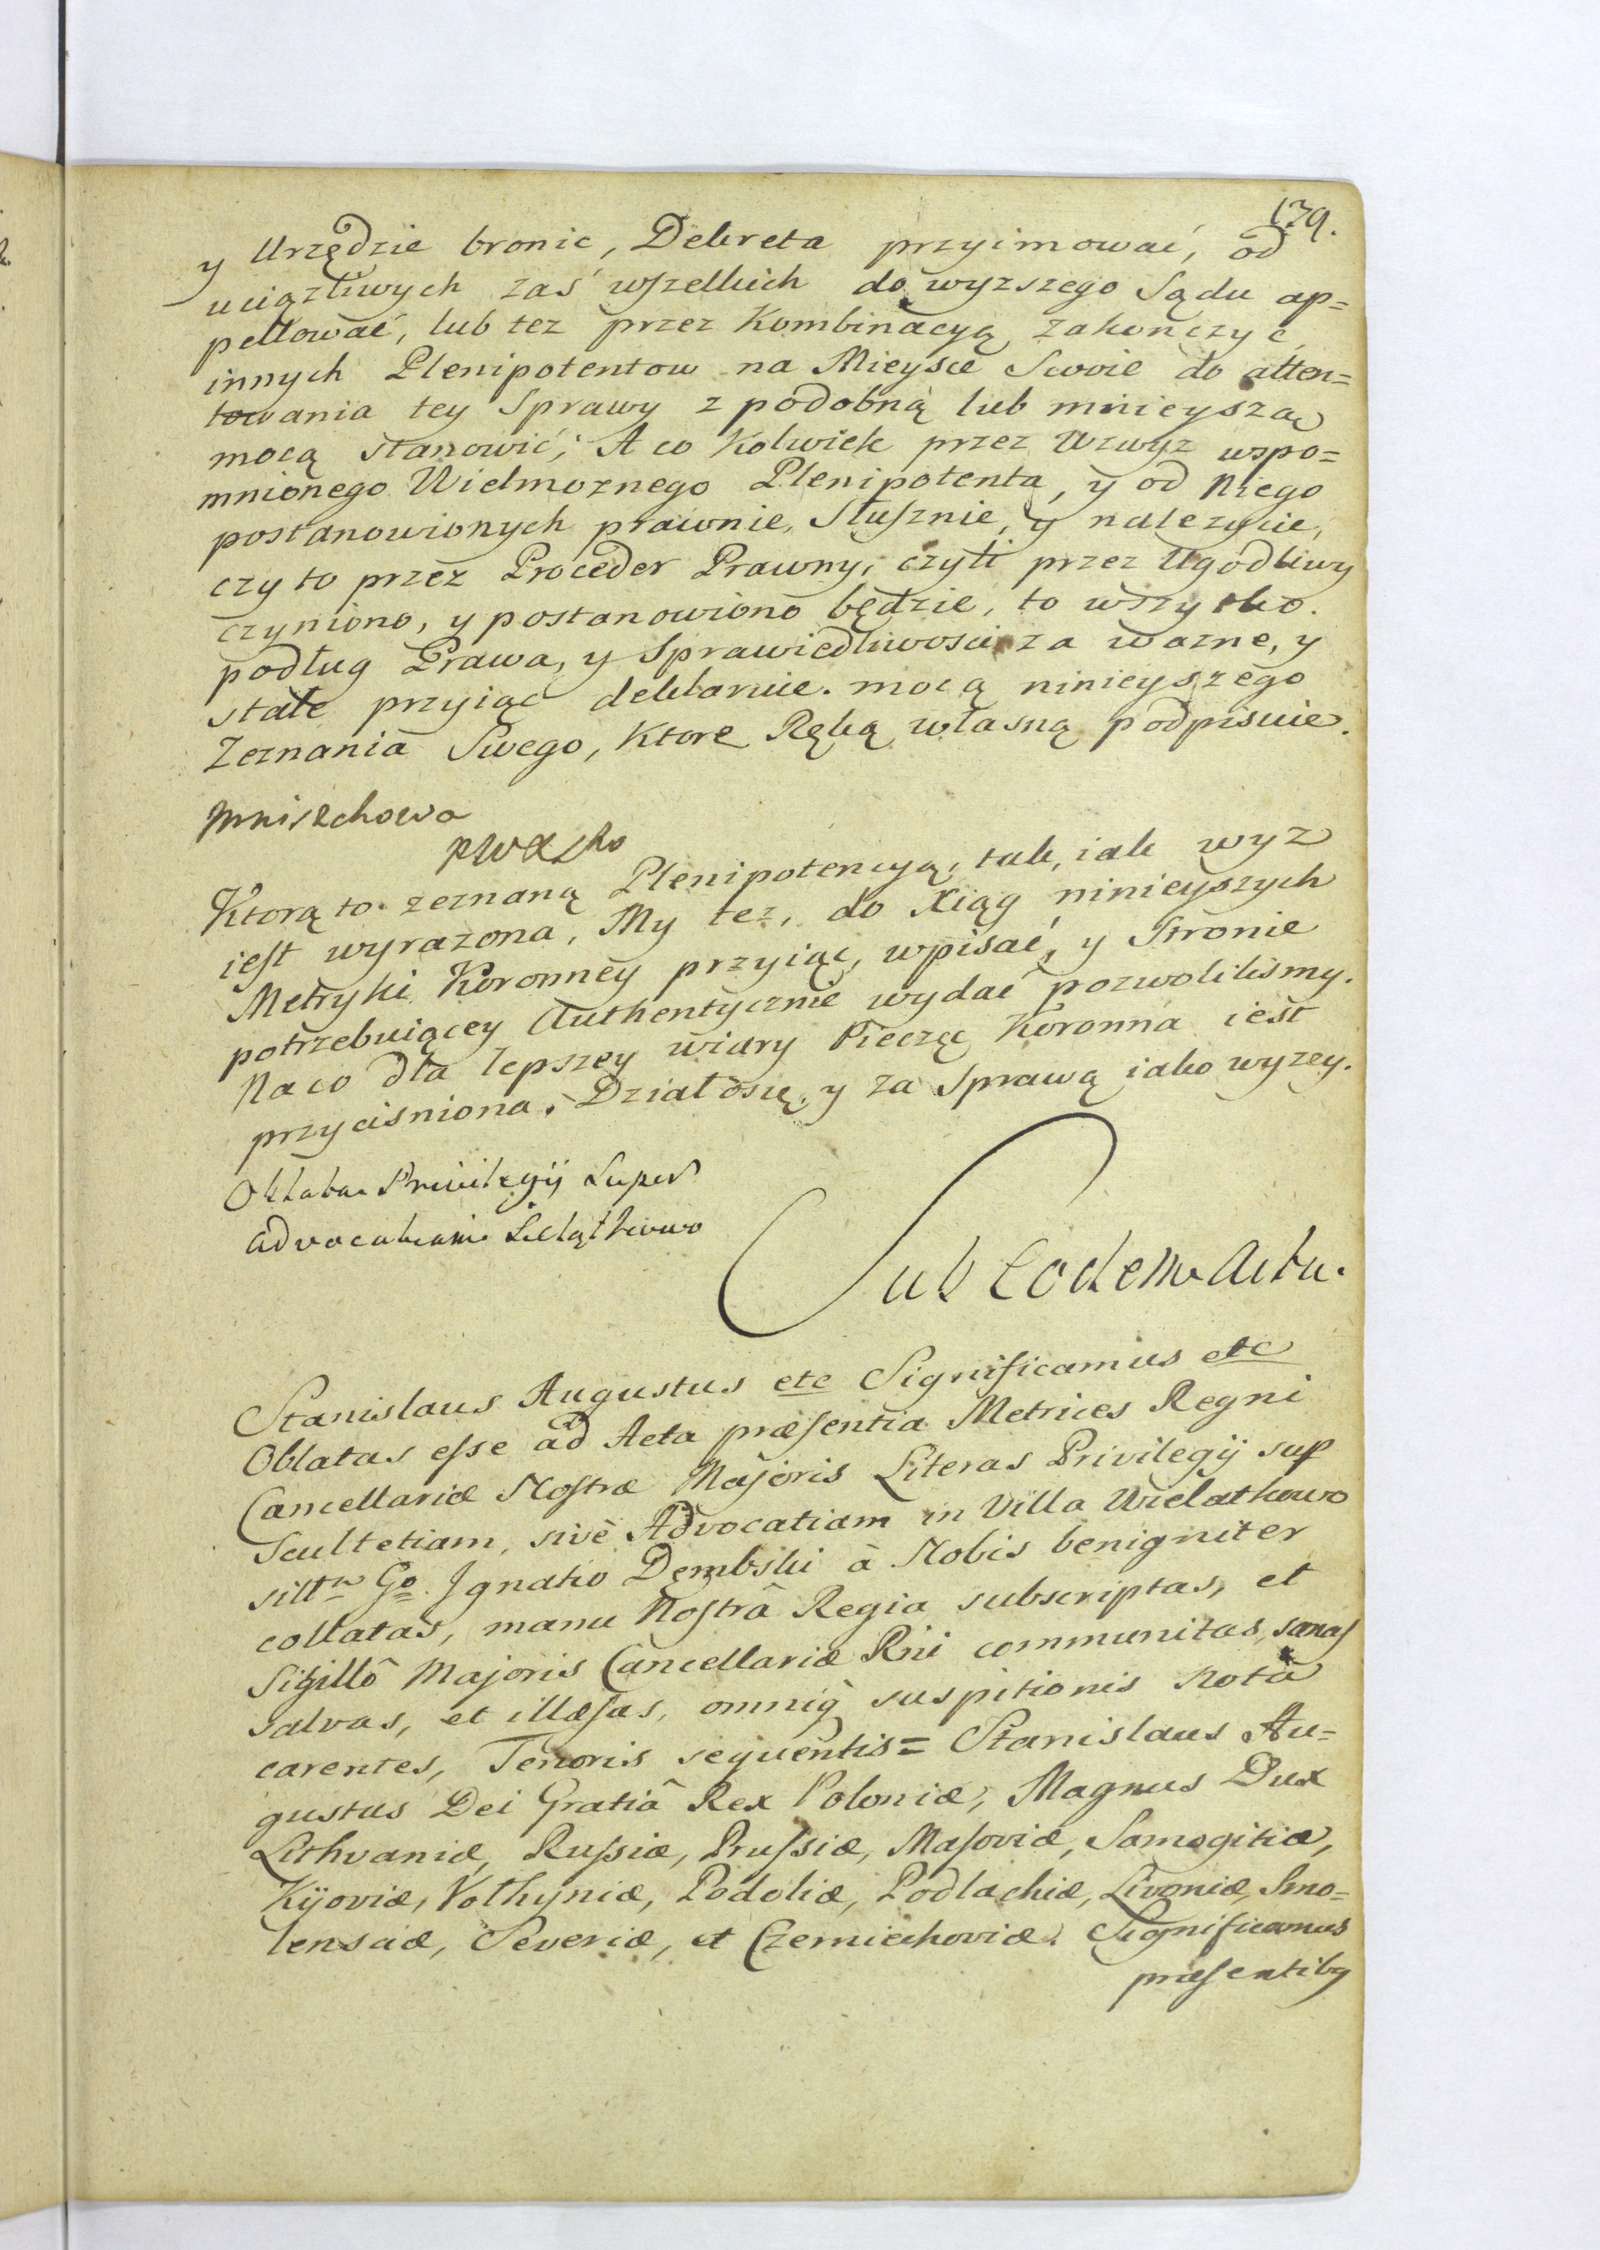 139.
y Urzędzie bronic, Dekreta przyimować, od
uciązliwych zaś wszelkich do wyzszego Sądu ap=
pellować, lub tez przez Kombinacyą zakończyć
innych Plenipotentow na Mieysce Swoie do atten=
towania tey Sprawy z podobną lub mnieyszą
mocą stanowić; A co Kolwiek przez Wzwyz wspo=
mnionego Wielmoznego Plenipotenta, y od Niego
postanowionych prawnie, Słusznie, y nalezycie,
czy to przez Proceder Prawny, czyli przez Ugodliwy
czyniono, y postanowiono będzie, to wszystko
podług Prawa, y Sprawiedliwosci za wazne, y
stałe przyiąc deklaruie. mocą ninieyszego
Zeznania Swego, Ktore Ręką własną podpisuie.
Mniszchowa
Ktorą to zeznaną Plenipotencyą, tak, iak wyz
iest wyrazona, My tez, do Xiąg ninieyszych
Metryki Koronney przyiąc, wpisać, y Stronie
potrzebuiącey Authentycznie wydać pozwolilismy.
Na co dla lepszey wiary Pieczęć Koronna iest
przycisniona. Działosię y za Sprawą iako wyzey.
Oblata Privilegij Super
advocatiam
Sub Eodem Actu.
Stanislaus Augustus etc Significamus etc
Oblatas esse ad Acta præsentia Metrices Regni
Cancellariæ Nostræ Majoris Literas Privilegij sup
Scultetiam, sivè Advocatiam in Villa Wielatkowo
Gō Ignatio Dembski à Nobis benigniter
collatas, manu Nostrâ Regia subscriptas, et
Sigillô Majoris Cancellariæ Rñi communitas, sanas
salvas, et illæsas, omniq suspitionis Notâ
carentes, Tenoris sequentis= Stanislaus Au=
gustus Dei Gratiâ Rex Poloniæ, Magnus Dux
Lithvaniæ, Russiæ, Prussiæ, Masoviæ, Samogitiæ,
Kijoviæ, Volhyniæ, Podoliæ, Podlachiæ, Livoniæ, Smo=
lensciæ, Severiæ, et Czerniechoviæ. Significamus
præsentibq